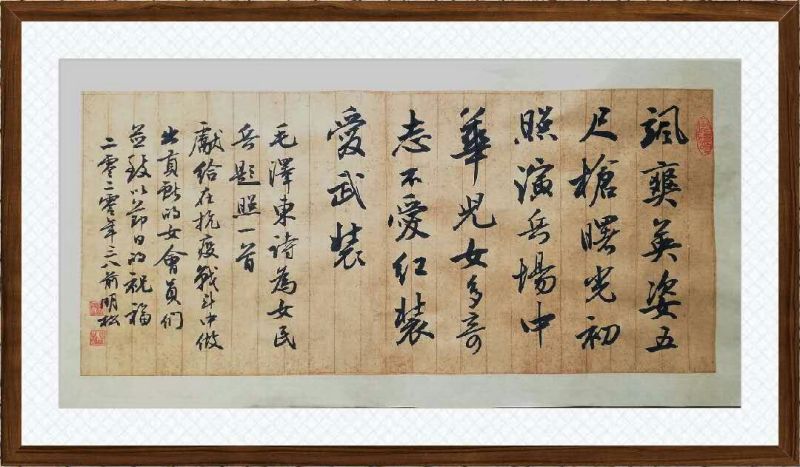 飒爽英姿五
尺槍曙光初
照演兵場中
華兒女多奇
志不愛红裝
愛武裝
毛澤東诗為女民
兵题照一首
獻给在抗疫戰斗中做
出貢献的女會員们
並致以節日的祝福
二零二零年三八前明松